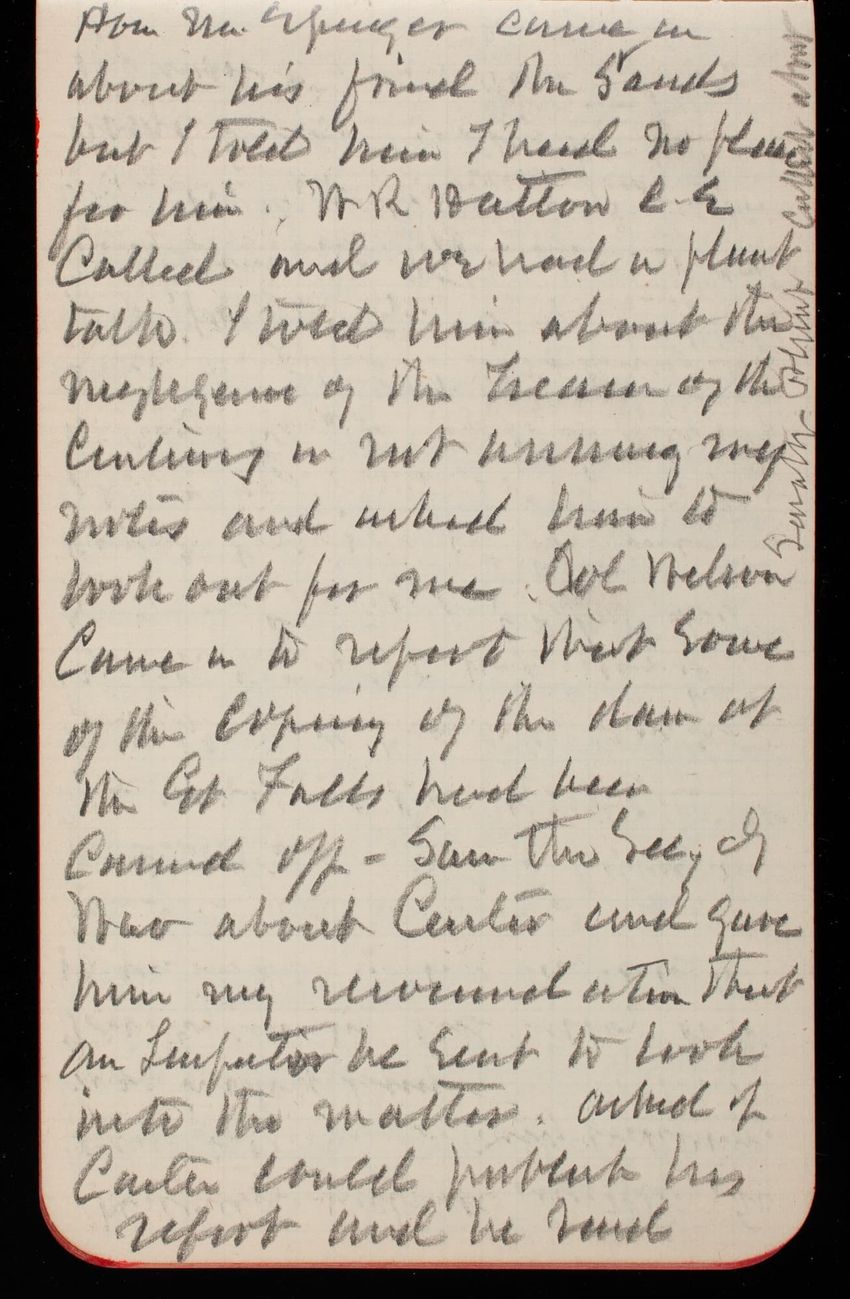 Hon Mr. Springer came in
about his friend the Sands
but I told him I had no place
for him. W R Hutton C. E
Called and we had a plsnt
talk. I told him about the
neglegence of the Treasur of the
Century in not returning my
notes and asked him to
look out for me. Col Wilson
Came in to report that some
of the coping of the dam at
the Gt Falls had been
Carried off - Saw the Secy of
War about Carter and gave
him my recommendation that
an Inspector be sent to look
into the matter. asked if
Carter could publish his
report and he said
Senator called about